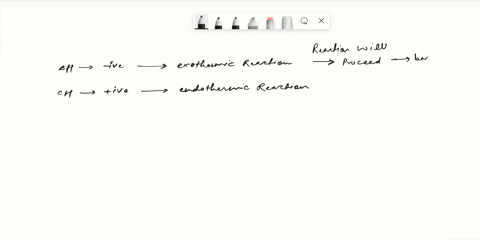 ΔH → -ive → exothermic Reaction → Reaction will Proceed →
ΔH → +ive → endothermic Reaction